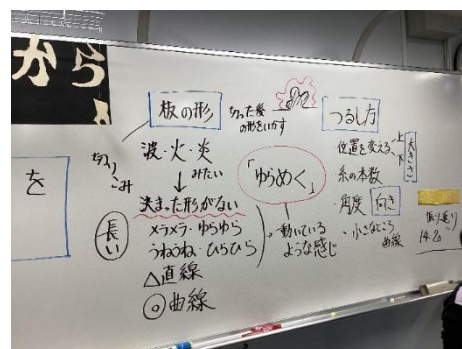 から
を
板の形
切った後
の形をいかす
切り
こみ
波・火・炎
みたい
↓
決まった形がない
長い
メラメラ・ゆらゆら
うねうね・ひらひら
△直線
◎曲線
「ゆらめく」
動いている
ような感じ
つるし方
位置を変える、上下
大きさ
糸の本数
・角度 向き
・小さなところ
曲線
振り返り